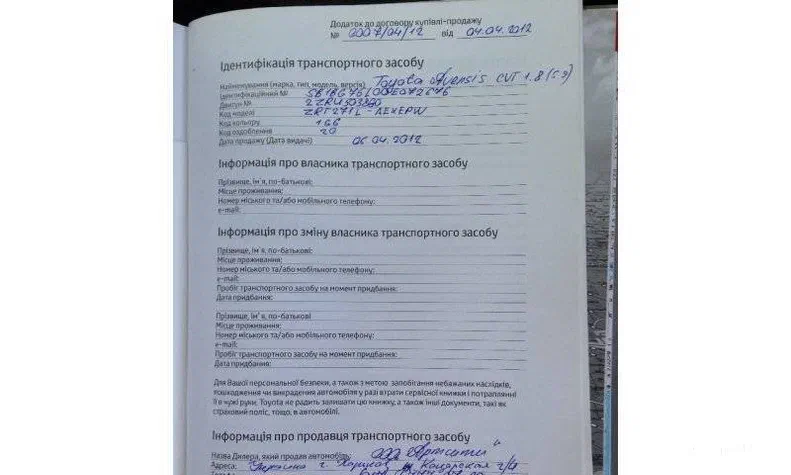 Додаток до договору купівлі-продажу
№ 0007/04/12 від 04.04.2012
Ідентифікація транспортного засобу
Найменування (марка, тип, модель, версія) Toyota Avensis CVT 1.8
Ідентифікаційний №
Двигун №
Код моделі ZRT271L-AEXEPW
Код кольору 1G6
Код оздоблення 20
Дата продажу (Дата видачі) 06.04.2012
Інформація про власника транспортного засобу
Прізвище, ім'я, по-батькові:
Місце проживання:
Номер міського та/або мобільного телефону:
e-mail:
Інформація про зміну власника транспортного засобу
Прізвище, ім'я, по-батькові:
Місце проживання:
Номер міського та/або мобільного телефону:
e-mail:
Пробіг транспортного засобу на момент придбання:
Дата придбання:
Прізвище, ім'я, по-батькові
Місце проживання:
Номер міського та/або мобільного телефону:
e-mail:
Пробіг транспортного засобу на момент придбання:
Дата придбання:
Для Вашої персональної безпеки, а також з метою запобігання небажаних наслідків,
пошкодження чи викрадення автомобіля у разі втрати сервісної книжки і потраплянні
її в чужі руки, Toyota не радить залишати цю книжку, а також інші документи, такі як
страховий поліс, тощо, в автомобілі.
Інформація про продавця транспортного засобу
Назва Дилера, який продав автомобіль:
Адреса: Україна г. Харьков